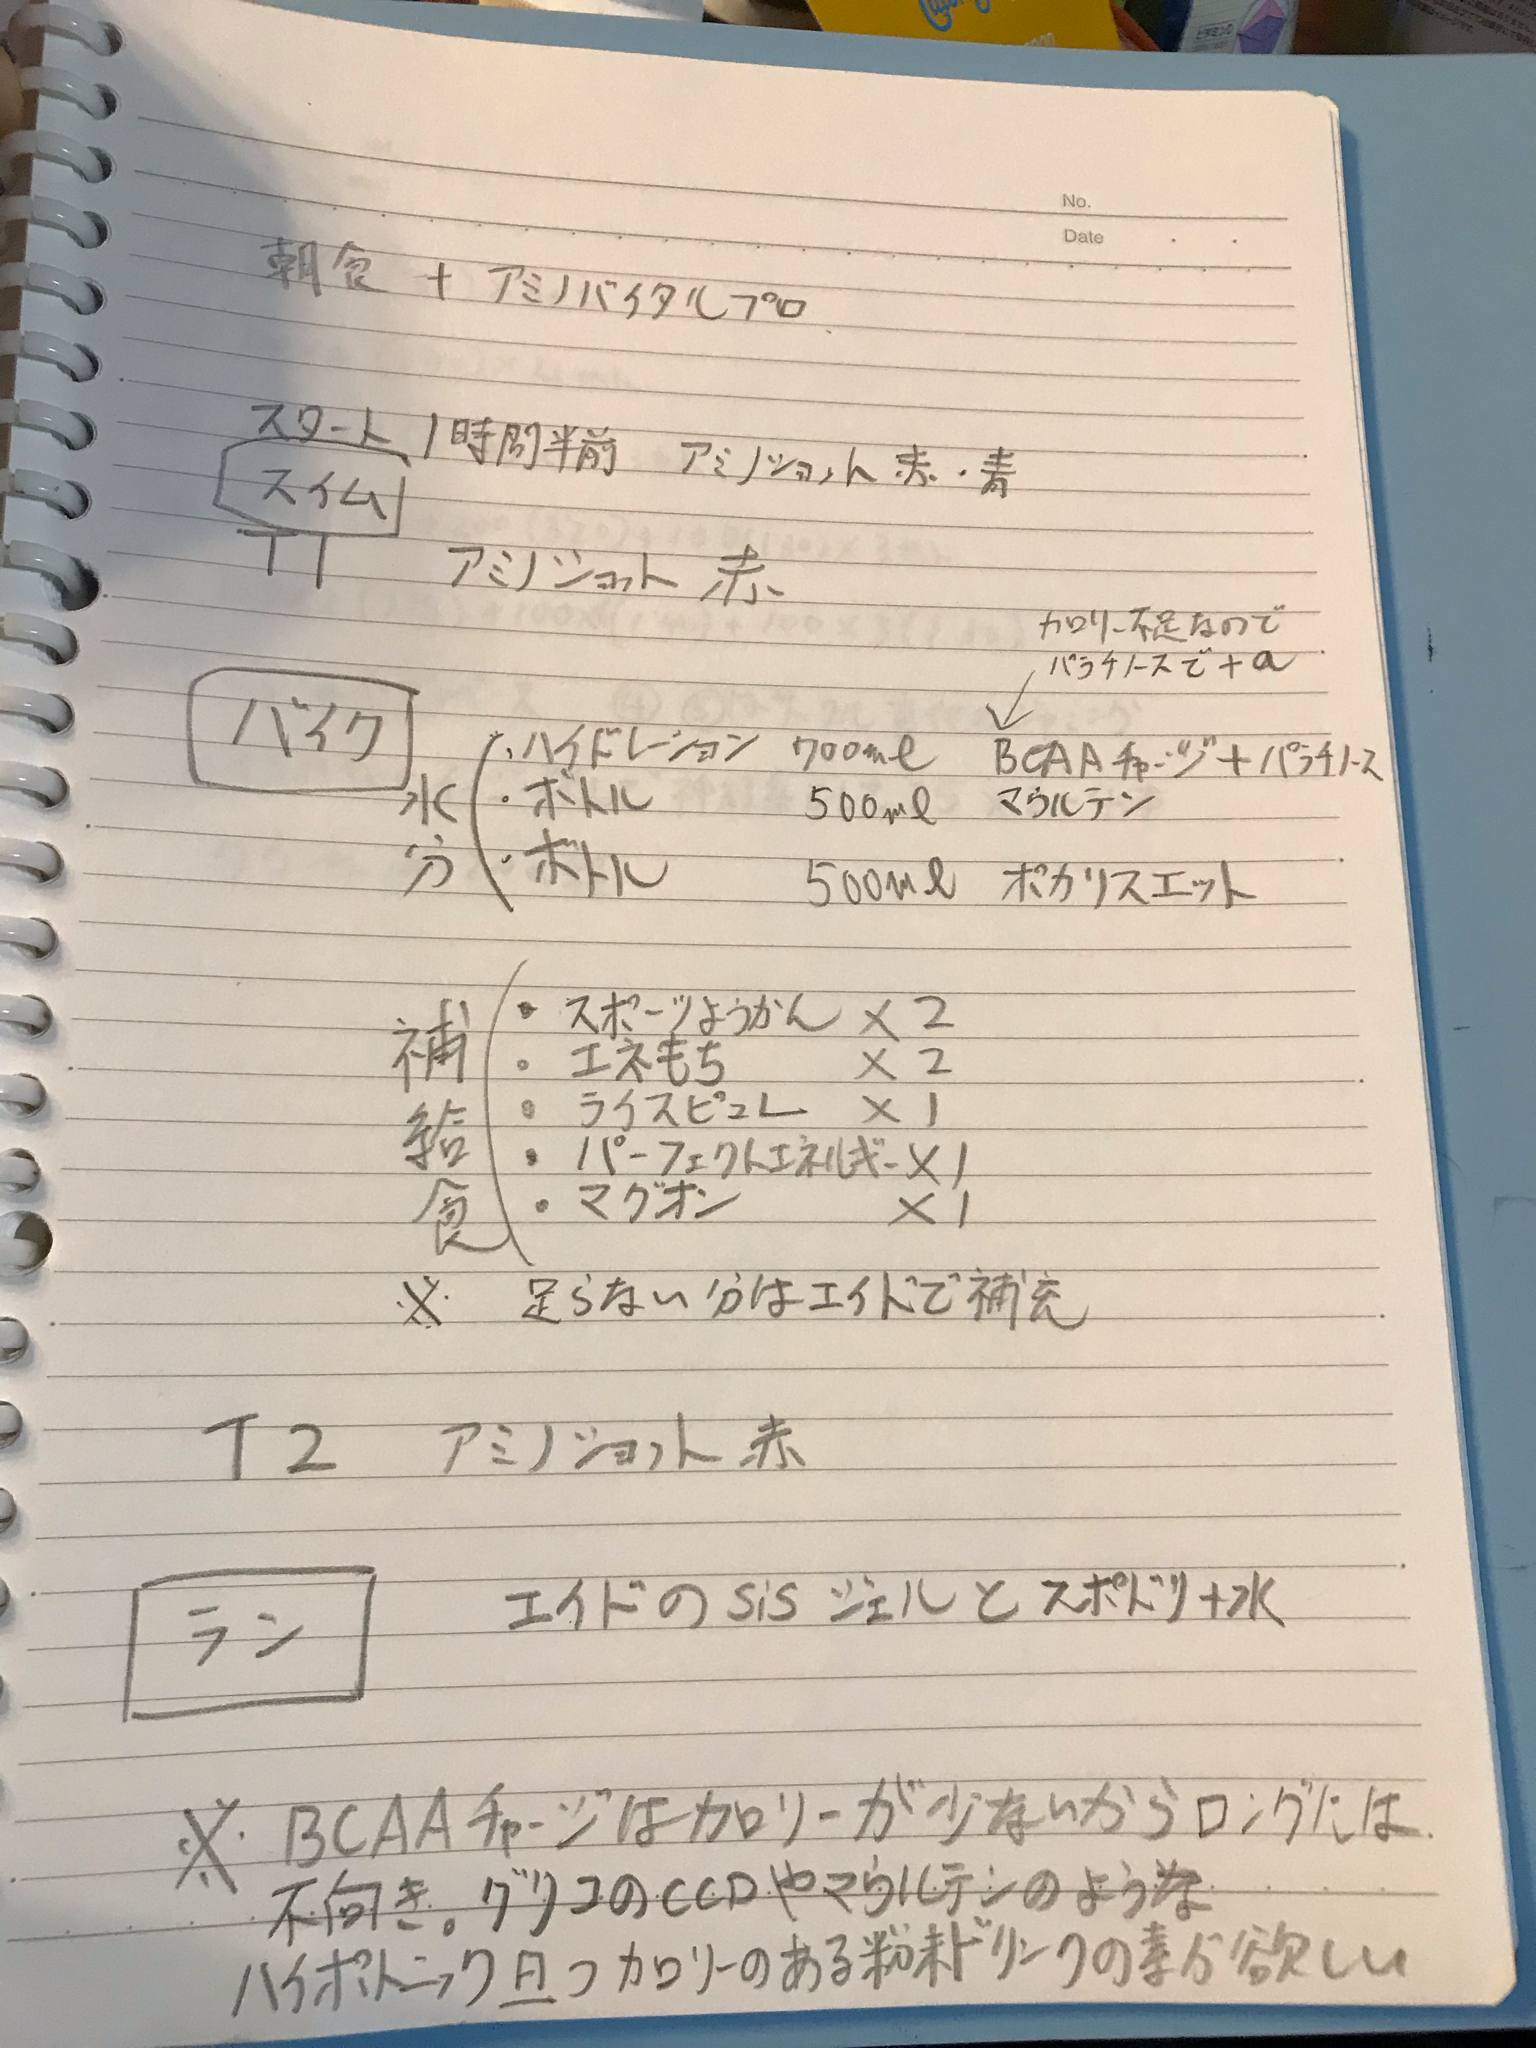 No.
Date
朝食 + アミノバイタルプロ
スタート 1時間半前 アミノショット 赤・青
スイム
T1 アミノショット 赤
カロリー不足なので
パラチノースで+α
バイク
水分
・ハイドレーション 700ml BCAAチャージ+パラチノース
・ボトル 500ml マウルテン
・ボトル 500ml ポカリスエット
補給食
・スポーツようかん ×2
・エネもち ×2
・ライスピュレ ×1
・パーフェクトエネルギー×1
・マグオン ×1
※ 足らない分はエイドで補充
T2 アミノショット 赤
ラン
エイドのSiSジェルとスポドリ+水
※ BCAAチャージはカロリーが少ないからロングには
不向き。グリコのCCDやマウルテンのような
ハイポトニック且つカロリーのある粉末ドリンクの素が欲しい